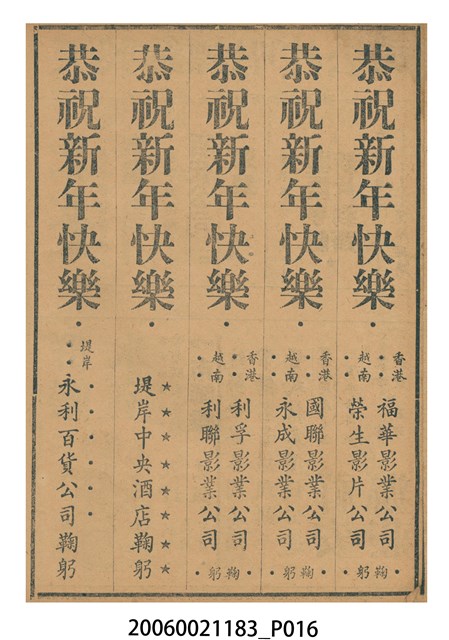 恭祝新年快樂
香港 福華影業公司
越南 榮生影片公司
鞠躬
恭祝新年快樂
香港 國聯影業公司
越南 永成影業公司
鞠躬
恭祝新年快樂
香港 利孚影業公司
越南 利聯影業公司
鞠躬
恭祝新年快樂
堤岸中央酒店鞠躬
恭祝新年快樂
堤岸
永利百貨公司鞠躬
20060021183_P016